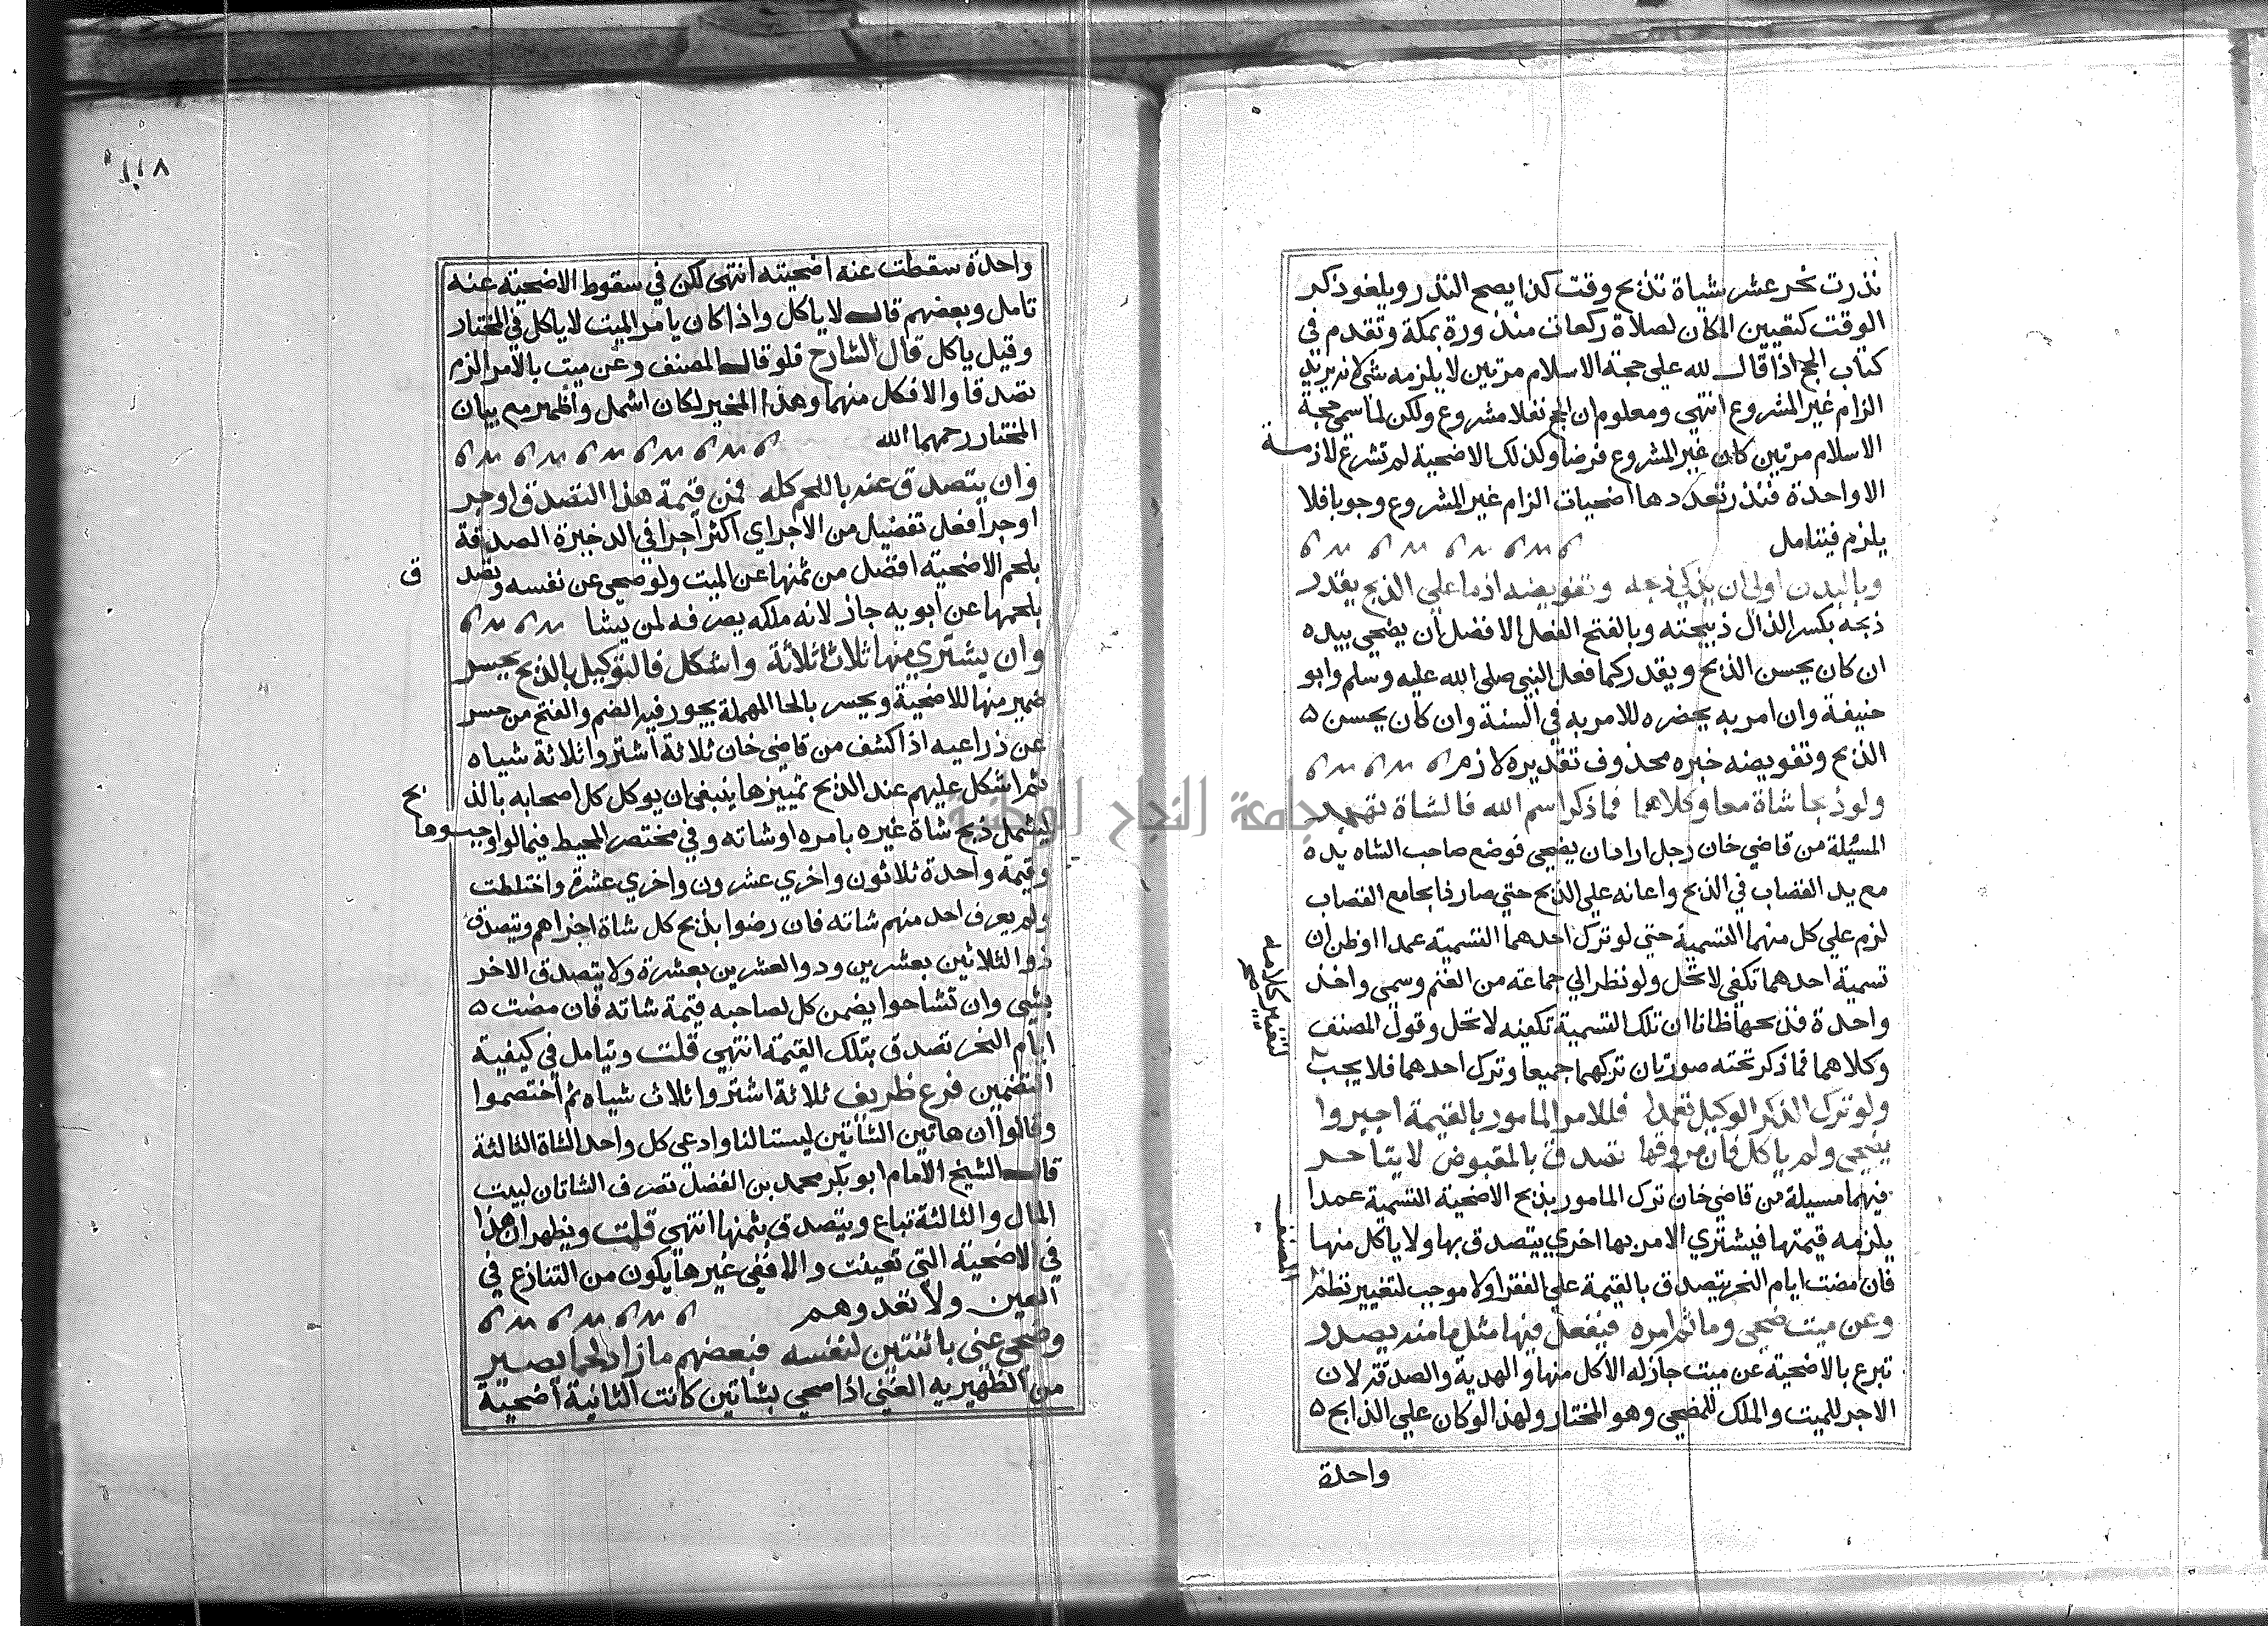 نذرت نحر عشر شياة تذبح وقت كذا يصح النذر ويلغو ذكر
الوقت كتعيين المكان لصلاة ركعات منذورة بمكة وتقدم في
كتاب الحج اذا قال لله علي حجة الاسلام مرتين لا يلزمه شي لانه يريد
الزام غير المشروع انتهي ومعلوم ان الحج نفلا مشروع ولكن لما سمي حجة
الاسلام مرتين كان غير المشروع فرضا وكذلك الاضحية لم تشرع لازمة
الا واحدة فنذر تعددها اضحيات الزام غير المشروع وجوبا فلا
يلزم فيتامل
وباليدن اولي ان يذكي ذبحه وتفويضه اذما علي الذبح يقدر
ذبحه بكسر الذال ذبيحته وبالفتح الفعل الافضل ان يضحي بيده
ان كان يحسن الذبح ويقدر كما فعل النبي صلى الله عليه وسلم وابو
حنيفة وان امر به يحضره للامر به في السنة وان كان يحسن ه
الذبح وتفويضه خبره محذوف تقديره لازم
ولو ذبحا شاة معا وكلاهما فما ذكرا اسم الله فالشاة تهدر
المسئلة من قاضي خان رجل اراد ان يضحي فوضع صاحب الشاه يده
مع يد القصاب في الذبح واعانه علي الذبح حتي صار ذابحا مع القصاب
لزم علي كل منهما التسمية حتي لو ترك احدهما التسمية عمدا او ظن ان
تسمية احدهما تكفي لا تحل ولو نظر الي جماعته من الغنم وسمي واخذ
واحدة فذبحها ظانا ان تلك التسمية تكفيه لا تحل وقول المصنف
وكلاهما فما ذكر تحته صورتان تركهما جميعا وترك احدهما فلا يجب
لتغيير كلامه صح
ولو ترك الذكر الوكيل تعمدا فللامر المامور بالقيمة اجبروا
يضحي ولم ياكل فان مر وقتها تصدق بالمقبوض لا يتاخر
فيهما مسيلة من قاضي خان ترك المامور بذبح الاضحية التسمية عمدا
يلزمه قيمتها فيشتري الامر بها اخري يتصدق بها ولا ياكل منها
فان مضت ايام النحر يتصدق بالقيمة علي الفقرا ولا موجب لتغيير نظم
المصنف
وعن ميت ضحي وما ثم امره فيفعل فيها مثل ما منه يصدر
تبرع بالاضحية عن ميت جاز له الاكل منها والهدية والصدقة لان
الاجر للميت والملك للمضحي وهو المختار ولهذا لو كان علي الذابح ه
واحدة
١١٨
واحدة سقطت عنه اضحيته انتهى لكن في سقوط الاضحية عنه
تامل وبعضهم قال لا ياكل واذا كان يامر الميت لا ياكل في المختار
وقيل ياكل قال الشارح فلو قال المصنف وعن ميت بالامر الزم
تصدقا والا فكل منهما وهذا المخير لكان اشمل واظهر مع بيان
المختار رحمهما الله
وان يتصدق عنه باللحم كله فمن قيمة هذا التصدق اوجر
اوجر افعل تفضيل من الاجر اي اكثر اجرا في الدخيرة الصدقة
بلحم الاضحية افضل من ثمنها عن الميت ولو ضحي عن نفسه وتصدق
بلحمها عن ابويه جاز لانه ملكه يصرفه لمن يشا
وان يشتري منها ثلاث ثلاثة واشكل فالتوكيل بالذبح يحسر
ضمير منها للاضحية ويحسر بالحا المهملة يجوز فيه الضم والفتح من حسر
عن ذراعيه اذا كشف من قاضي خان ثلاثة اشتروا ثلاثة شياه
ثم اشكل عليهم عند الذبح تمييزها ينبغي ان يوكل كل اصحابه بالذبح
ليشمل ذبح شاة غيره بامره او شاته وفي مختصر المحيط فيما لو اوجبوها
وقيمة واحدة ثلاثون واخري عشرون واخري عشرة واختلطت
ولم يعرف احد منهم شاته فان رضوا بذبح كل شاة اجزاهم ويتصدق
ذو الثلاثين بعشرين وذو العشرين بعشرة ولا يتصدق الاخر
بشي وان تشاحوا يضمن كل لصاحبه قيمة شاته فان مضت ه
ايام النحر تصدق بتلك القيمة انتهي قلت ويتامل في كيفية
التضمين فرع ظريف ثلاثة اشتروا ثلاث شياه ثم اختصموا
وقالوا ان هاتين الشاتين ليستا لنا وادعي كل واحد الشاة الثالثة
قال الشيخ الامام ابو بكر محمد بن الفضل تصرف الشاتان لبيت
المال والثالثة تباع ويتصدق بثمنها انتهي قلت ويظهر ان هذا
في الاضحية التي تعينت والا ففي غيرها يكون من التنازع في
العين ولا تعدوهم
وضحي غني باثنتين لنفسه فبعضهم ما زاد لحما يصير
من الظهيريه الغني اذا ضحي بشاتين كانت الثانية اضحية
جامعة النجاح الوطنية